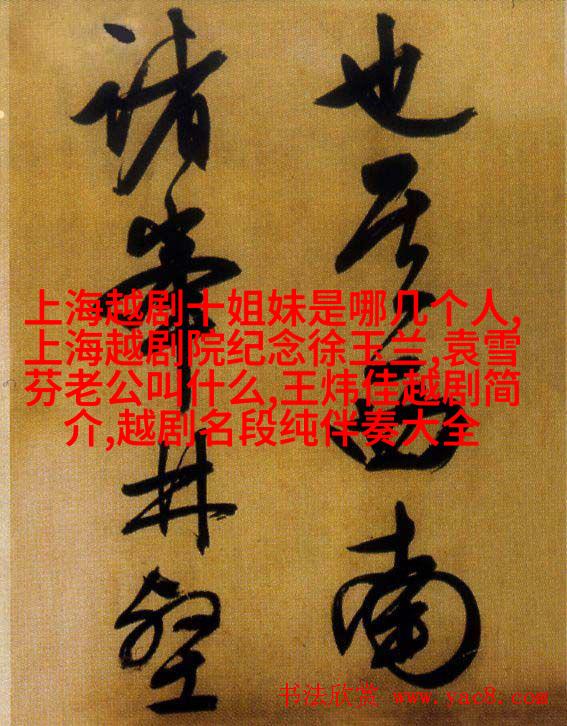 也其西南
諸峯林壑
上海越剧十姐妹是哪几个人,
上海越剧院纪念徐玉兰,袁雪
芬老公叫什么,王炜佳越剧简
介,越剧名段纯伴奏大全
书法欣赏 www.yac8.com